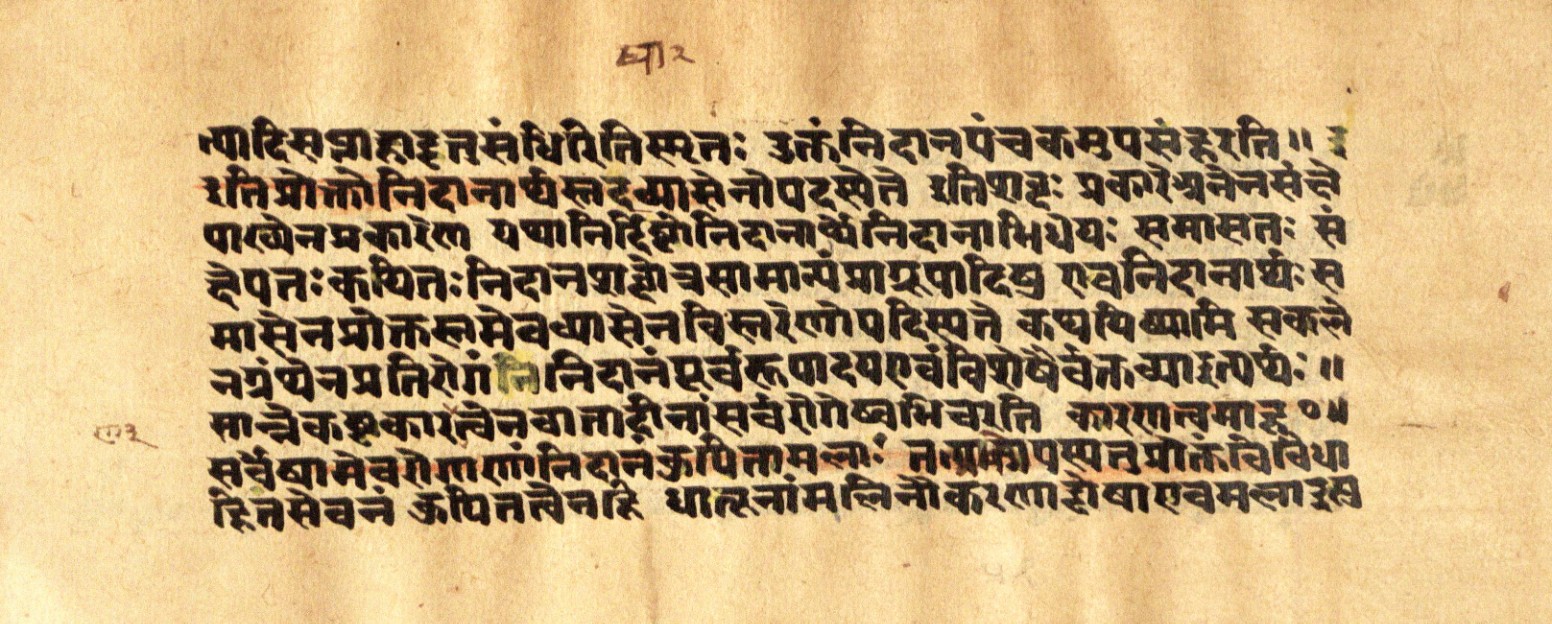 त्यादिसप्राहादृतसंधिरितिस्मृतः उक्तंनिदानपंचकमुपसंहरति॥ इ
इतिप्रोक्तोनिदानार्थस्तद्व्यासेनोपदेक्ष्यते इतिशब्दः प्रकारेअनेनसंक्षे
पाख्येनप्रकारेण यथानिर्दिष्टोनिदानार्थोनिदानाभिधेयः समासतः सं
क्षेपतःकथितःनिदानशब्दोत्रसामान्यंप्राग्रूपादिषु एवनिदानार्थः स
मासेनप्रोक्तस्तमेवव्यासेनविस्तरेणोपदिश्यते कथयिष्यामि सकले
नग्रंथेनप्रतिरोगंनिनिदानंपूर्वरूपादयएवंविशेषैर्वक्तव्याइत्यर्थः॥
सान्नैकष्टकारत्वेनवातादीनांसर्वरोगेष्वभिचरति कारणत्वमाह०॥
सर्वेषामेवरोगाणांनिदानंकुपितामलाः तत्प्रकोपस्यतुप्रोक्तंविविधा
हितसेवनं कुपितत्वेनहि धातूनांमलिनीकरणाद्दोषाएवमलाइत्यु